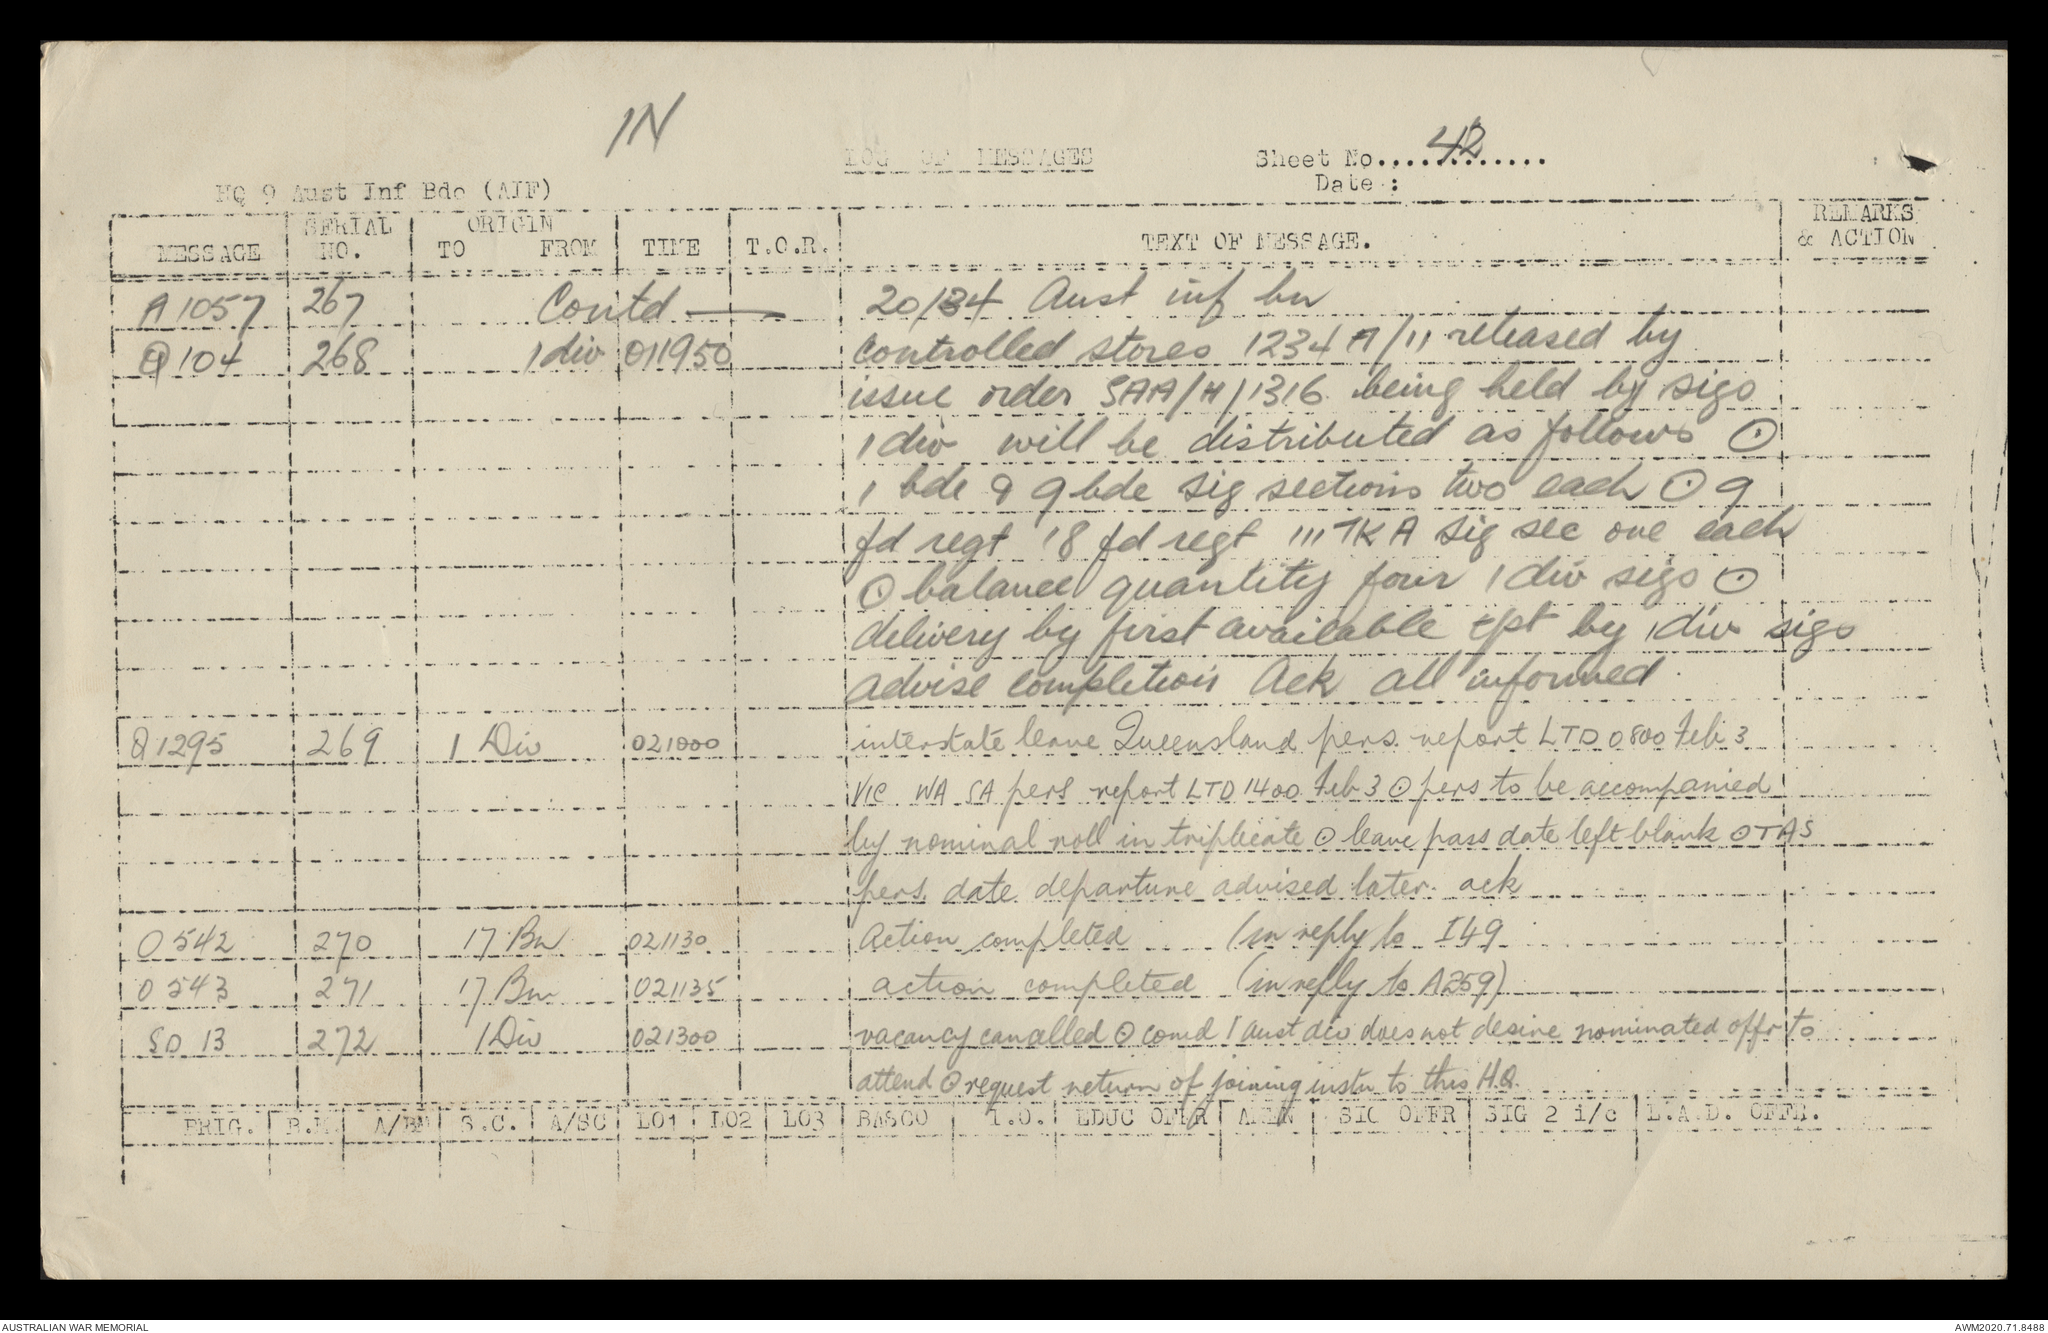 IN
LOG OF MESSAGES
Sheet No............. 42
Date :
HQ 9 Aust Inf Bde (AIF)
MESSAGE SERIAL NO. ORIGIN TO FROM TIME T.O.R. TEXT OF MESSAGE. REMARKS & ACTION
A 1057 267 Contd — 20/34 Aust inf bn
Q 104 268 1 div 011950 controlled stores 1234 A/11 released by
issue order SAA/H/1316 being held by sigs
1 div will be distributed as follows ⊙
1 bde & 9 bde sig sections two each ⊙ 9
fd regt 18 fd regt 111 TK A sig sec one each
⊙ balance quantity four 1 div sigs ⊙
delivery by first available tpt by 1 div sigs
advise completion Ack all informed
Q 1295 269 1 Div 021000 interstate leave Queensland pers. report LTD 0800 Feb 3
VIC WA SA pers report LTD 1400 Feb 3 ⊙ pers to be accompanied
by nominal roll in triplicate ⊙ leave pass date left blank ⊙ TAS
pers. date departure advised later. ack
O 542 270 17 Bn 021130 Action completed (in reply to I49
O 543 271 17 Bn 021135 action completed (in reply to A259)
SD 13 272 1 Div 021300 vacancy cancelled ⊙ comd 1 aust div does not desire nominated offr to
attend ⊙ request return of joining instn to this H.Q.
BRIG. B.M. A/BM S.C. A/SC LO1 LO2 LO3 BASCO I.O. EDUC OFFR AMEN SIG OFFR SIG 2 i/c L.A.D. OFFR.
AUSTRALIAN WAR MEMORIAL
AWM2020.71.8488